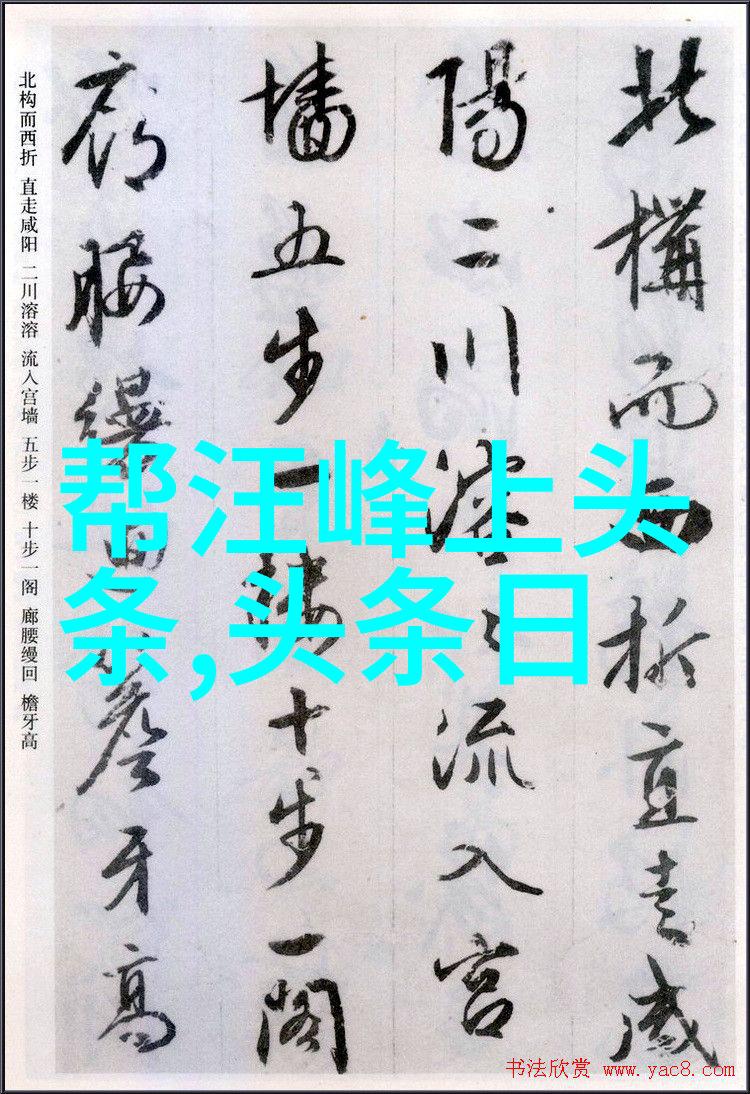 北構而西折直走咸
陽二川溶々流入宮
墻五步一樓十步一閣
廊腰縵迴簷牙高
北构而西折 直走咸阳 二川溶溶 流入宫墙 五步一楼 十步一阁 廊腰缦回 檐牙高
帮汪峰上头
条,头条日
书法欣赏 www.yac8.com